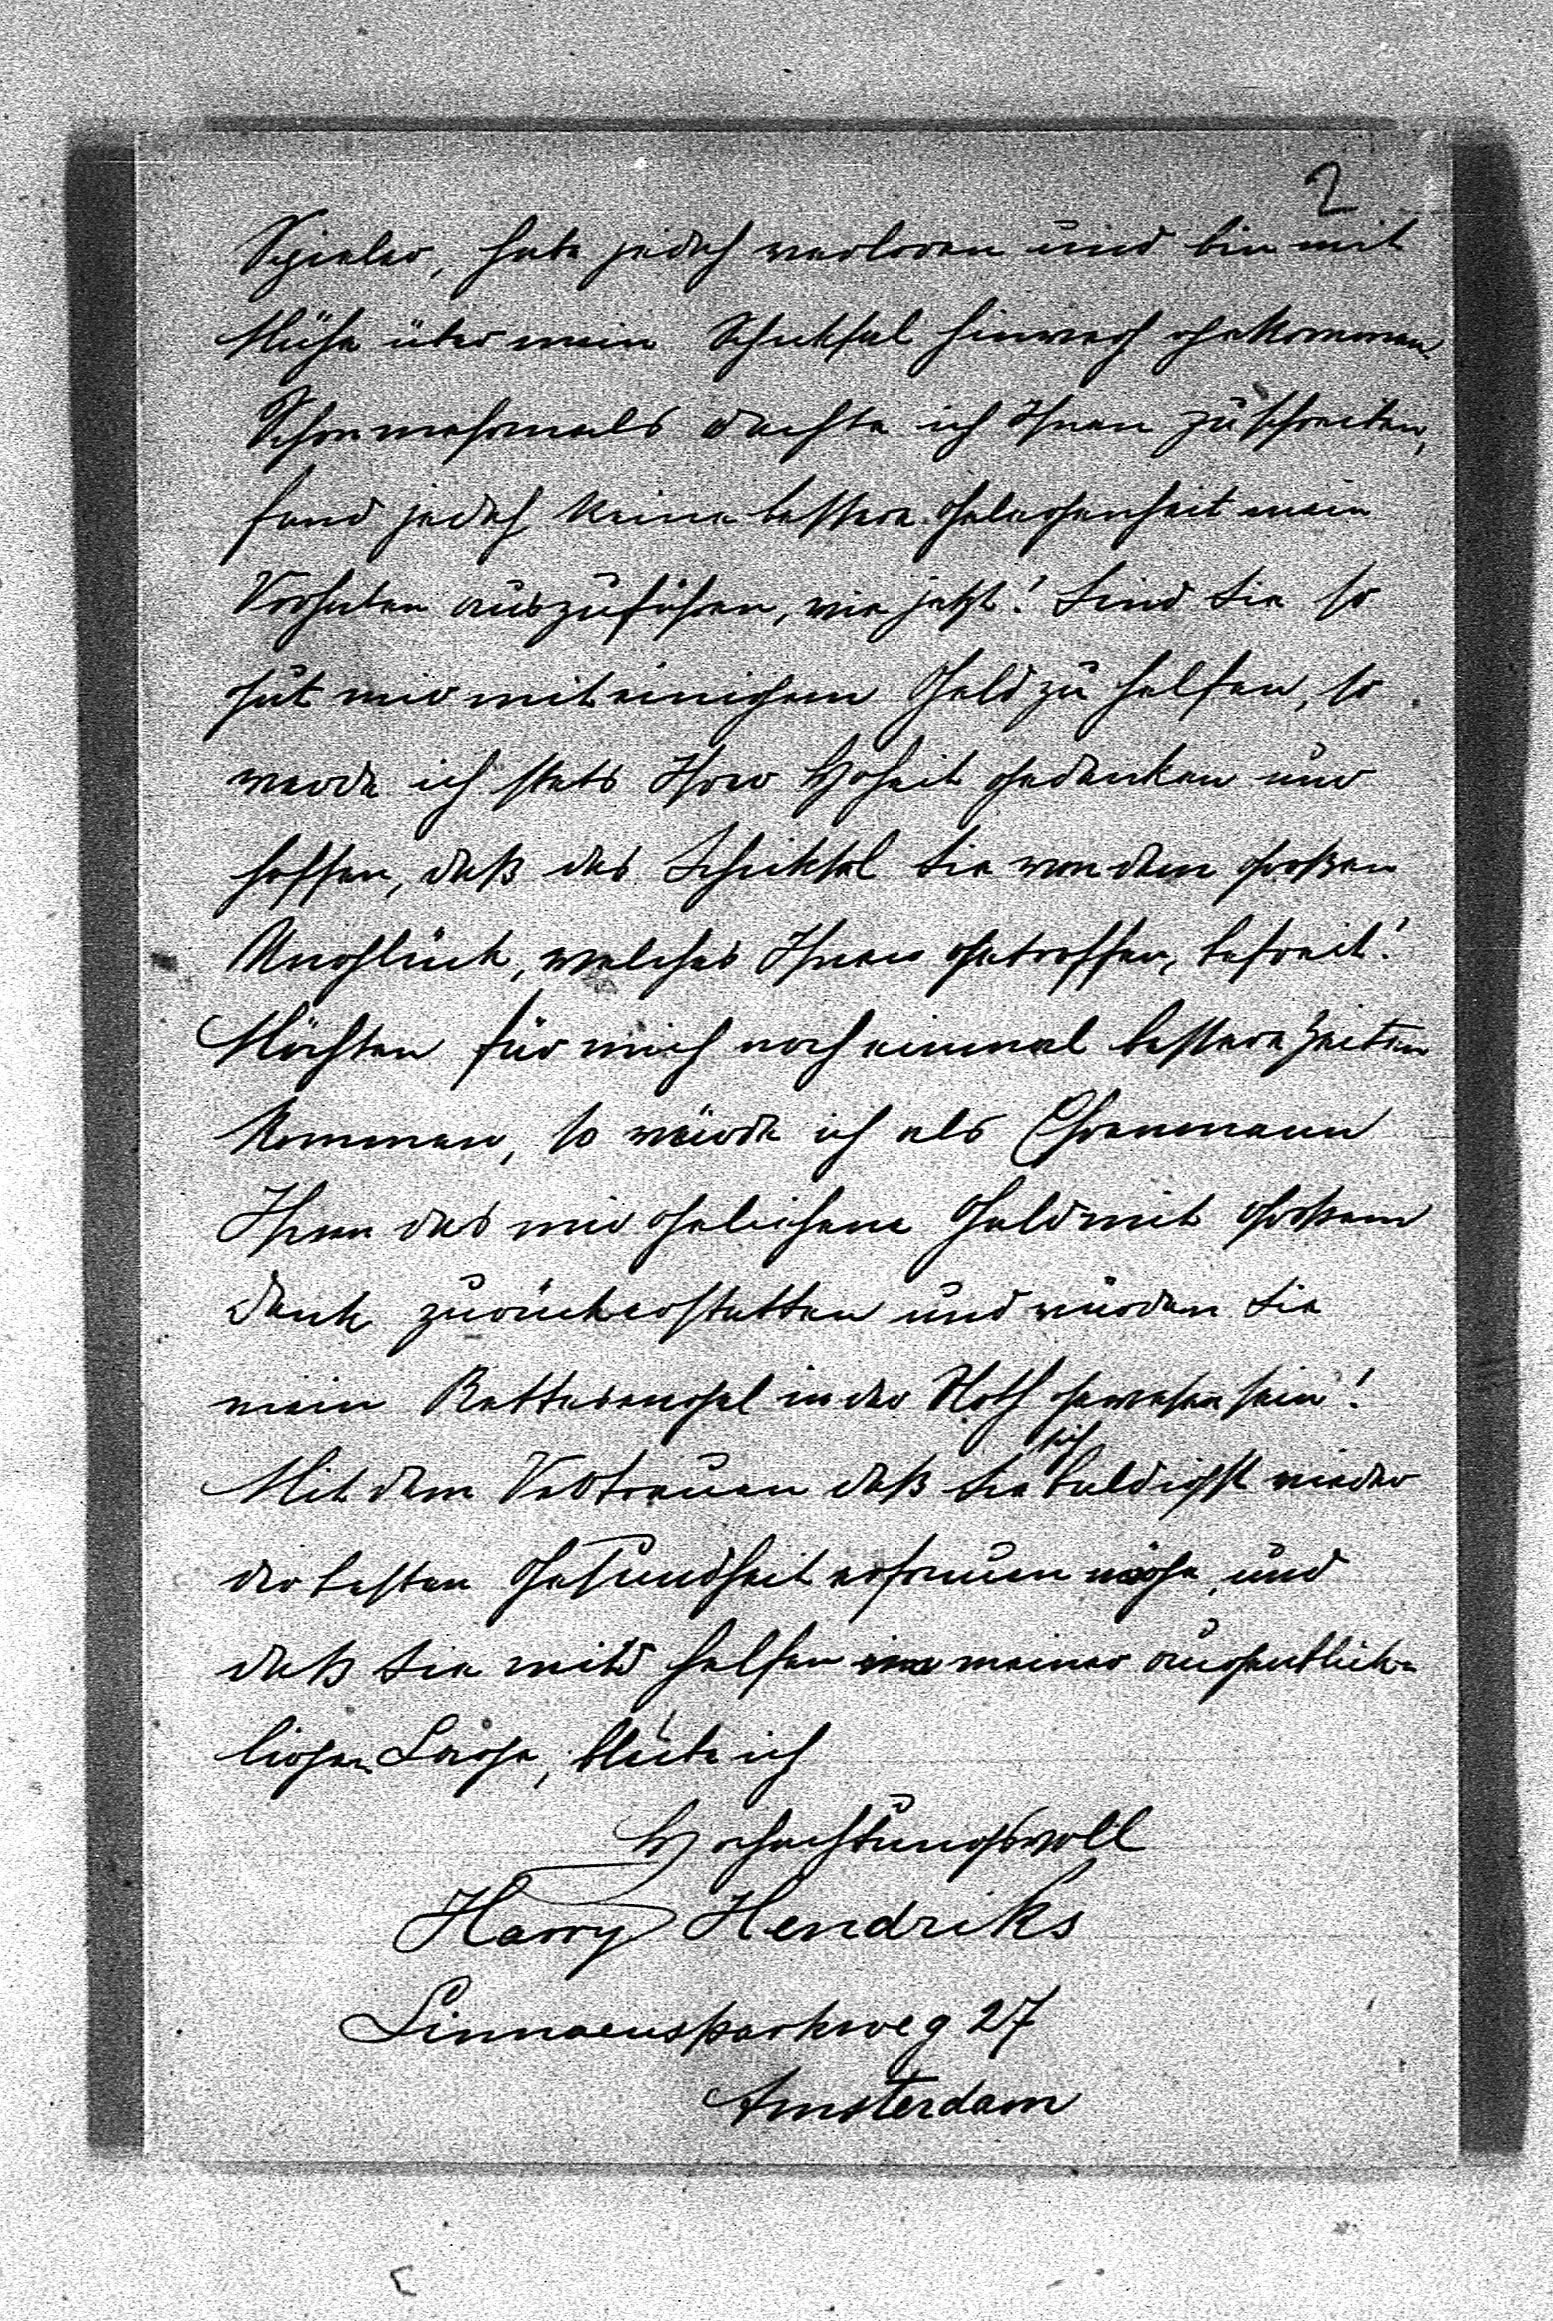 2
Spieler, habe jedoch verloren und bin mit
Mühe über mein Schicksal hinweg gekommen.
Schon mehrmals dachte ich Ihnen zu schreiben,
fand jedoch keine bessere Gelegenheit mein
Vorhaben auszuführen, wie jetzt! Sind Sie so
gut mir mit einigem Geld zu helfen, so
werde ich stets Ihrer Hoheit gedenken und
hoffen, daß das Schicksal Sie von dem großen
Unglück, welches Ihnen getroffen, befreit!
Möchten für mich noch einmal bessere Zeiten
kommen, so würde ich als Ehrenmann
Ihnen das mir geliehene Geld mit großem
Dank zurückerstatten und würden Sie
mein Rettersengel in der Noth gewesen sein!
Mit dem Vertrauen daß Sie sich baldigst wieder
der besten Gesundheit erfreuen möge, und
daß Sie mir helfen in meiner augenblick-
lichen Lage, bleibe ich
Hochachtungsvoll
Harry Hendriks
Linnaeusparkweg 27
Amsterdam